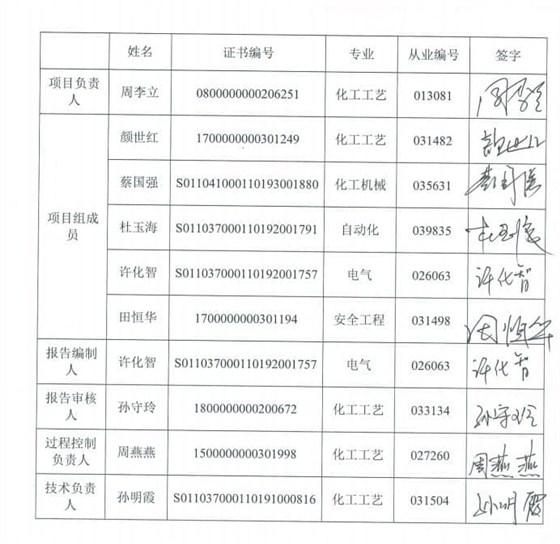 姓名 证书编号 专业 从业编号 签字
项目负责人 周李立 0800000000206251 化工工艺 013081 周李立
项目组成员 颜世红 1700000000301249 化工工艺 031482 颜世红
蔡国强 S011041000110193001880 化工机械 035631 蔡国强
杜玉海 S011037000110192001791 自动化 039835 杜玉海
许化智 S011037000110192001757 电气 026063 许化智
田恒华 1700000000301194 安全工程 031498 田恒华
报告编制人 许化智 S011037000110192001757 电气 026063 许化智
报告审核人 孙守玲 1800000000200672 化工工艺 033134 孙守玲
过程控制负责人 周燕燕 1500000000301998 化工工艺 027260 周燕燕
技术负责人 孙明霞 S011037000110191000816 化工工艺 031504 孙明霞